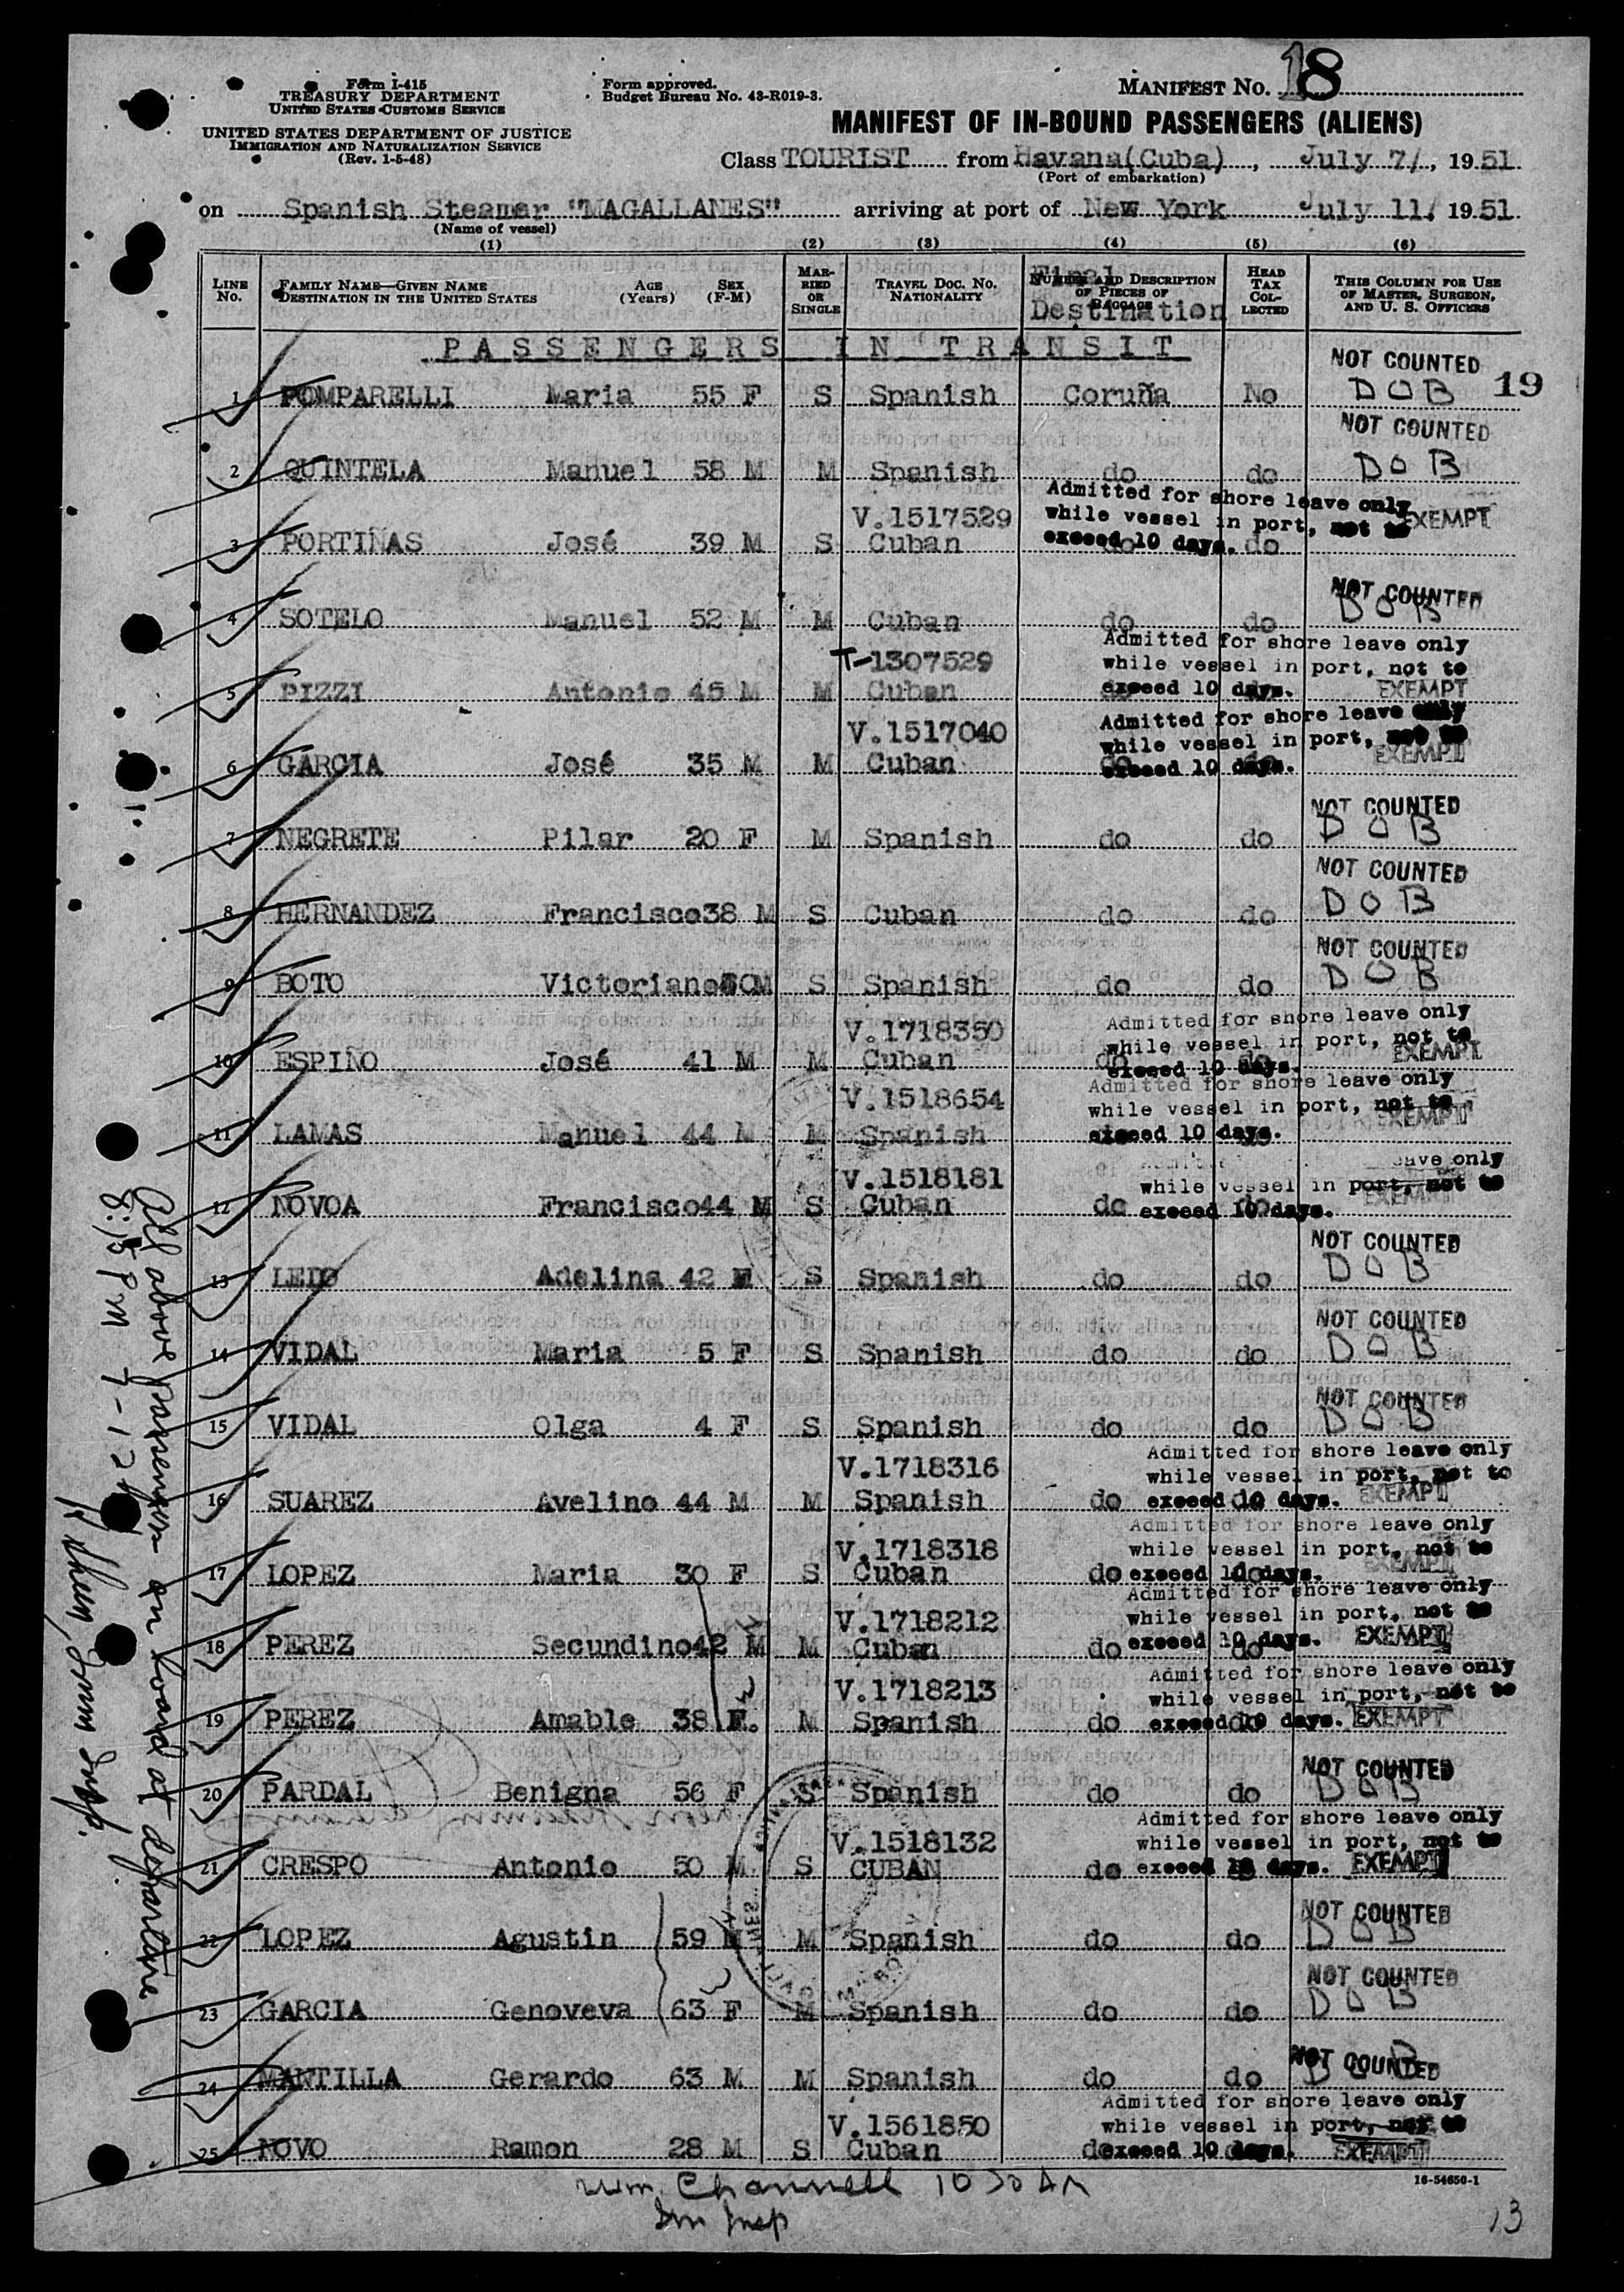 Form I-415
TREASURY DEPARTMENT
UNITED STATES CUSTOMS SERVICE
UNITED STATES DEPARTMENT OF JUSTICE
IMMIGRATION AND NATURALIZATION SERVICE
(Rev. 1-5-48)
Form approved.
Budget Bureau No. 43-R019-3.
MANIFEST No. 18
MANIFEST OF IN-BOUND PASSENGERS (ALIENS)
Class TOURIST from Havana(Cuba), July 7/, 1951
(Port of embarkation)
on Spanish Steamer "MAGALLANES" arriving at port of New York July 11/ 1951
(Name of vessel)
(1) (2) (3) (4) (5) (6)
LINE No. FAMILY NAME—GIVEN NAME DESTINATION IN THE UNITED STATES AGE (Years) SEX (F-M) MARRIED OR SINGLE TRAVEL DOC. No. NATIONALITY NUMBER AND DESCRIPTION OF PIECES OF BAGGAGE Final Destination HEAD TAX COLLECTED THIS COLUMN FOR USE OF MASTER, SURGEON, AND U. S. OFFICERS
PASSENGERS IN TRANSIT
NOT COUNTED
1 POMPARELLI Maria 55 F S Spanish Coruña No DOB 19
NOT COUNTED
2 QUINTELA Manuel 58 M M Spanish do do DOB
V.1517529 Admitted for shore leave only while vessel in port, not to exceed 10 days. EXEMPT
3 PORTIÑAS José 39 M S Cuban do do
NOT COUNTED
4 SOTELO Manuel 52 M M Cuban do do DOB
T-1307529 Admitted for shore leave only while vessel in port, not to exceed 10 days.
5 PIZZI Antonio 45 M M Cuban EXEMPT
V.1517040 Admitted for shore leave only while vessel in port, not to exceed 10 days.
6 GARCIA José 35 M M Cuban do do EXEMPT
NOT COUNTED
7 NEGRETE Pilar 20 F M Spanish do do DOB
NOT COUNTED
8 HERNANDEZ Francisco 38 M S Cuban do do DOB
NOT COUNTED
9 BOTO Victoriano M S Spanish do do DOB
V.1718350 Admitted for shore leave only while vessel in port, not to exceed 10 days.
10 ESPIÑO José 41 M M Cuban do do EXEMPT
V.1518654 Admitted for shore leave only while vessel in port, not to exceed 10 days.
11 LAMAS Manuel 44 M M Spanish EXEMPT
V.1518181 leave only while vessel in port, not to exceed 10 days.
12 NOVOA Francisco 44 M S Cuban do do EXEMPT
NOT COUNTED
13 LEIS Adelina 42 F S Spanish do do DOB
NOT COUNTED
14 VIDAL Maria 5 F S Spanish do do DOB
NOT COUNTED
15 VIDAL Olga 4 F S Spanish do do DOB
V.1718316 Admitted for shore leave only while vessel in port, not to exceed 10 days.
16 SUAREZ Avelino 44 M M Spanish do do EXEMPT
V.1718318 Admitted for shore leave only while vessel in port, not to exceed 10 days.
17 LOPEZ Maria 30 F S Cuban do do EXEMPT
V.1718212 Admitted for shore leave only while vessel in port, not to exceed 10 days.
18 PEREZ Secundino 42 M M Cuban do do EXEMPT
V.1718213 Admitted for shore leave only while vessel in port, not to exceed 10 days.
19 PEREZ Amable 38 F. M Spanish do do EXEMPT
NOT COUNTED
20 PARDAL Benigna 56 F S Spanish do do DOB
V.1518132 Admitted for shore leave only while vessel in port, not to exceed 10 days.
21 CRESPO Antonio 50 M S CUBAN do EXEMPT
NOT COUNTED
22 LOPEZ Agustin 59 M M Spanish do do DOB
NOT COUNTED
23 GARCIA Genoveva 63 F M Spanish do do DOB
NOT COUNTED
24 MANTILLA Gerardo 63 M M Spanish do do DOB
V.1561850 Admitted for shore leave only while vessel in port, not to exceed 10 days.
25 NOVO Ramon 28 M S Cuban do do EXEMPT
16-54650-1
Wm. Channell 10 30 AM
Im Insp
13
All above passengers on board at departure
8:15 PM 7-12
Imm Insp.